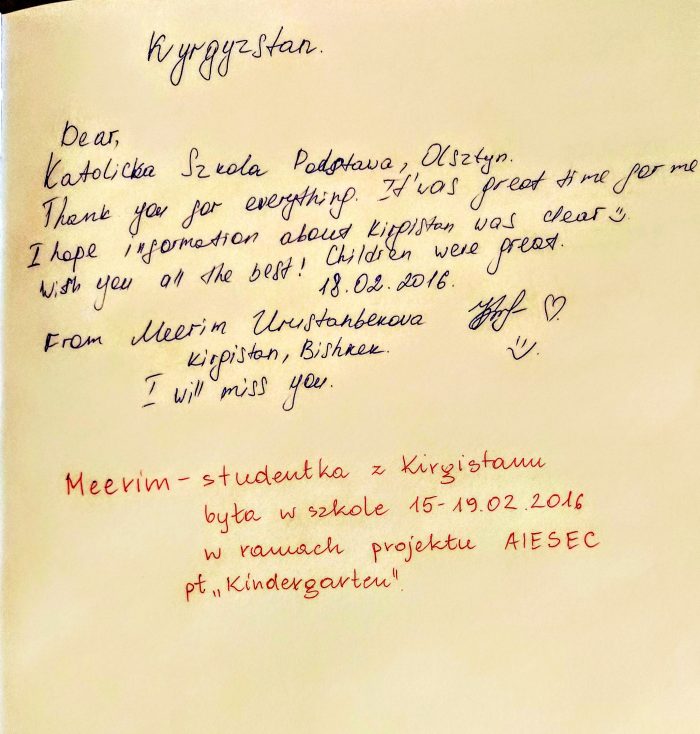 Kyrgyzstan.
Dear,
Katolicka Szkoła Podstawa, Olsztyn.
Thank you for everything. It'was great time for me
I hope information about Kirgistan was clear☺.
Wish you all the best! Children were great.
18.02.2016.
From Meerim Urustanbekova ♡
Kirgistan, Bishkek. ☺.
I will miss you.
Meerim - studentka z Kirgistanu
była w szkole 15-19.02.2016
w ramach projektu AIESEC
pt „Kindergarten".